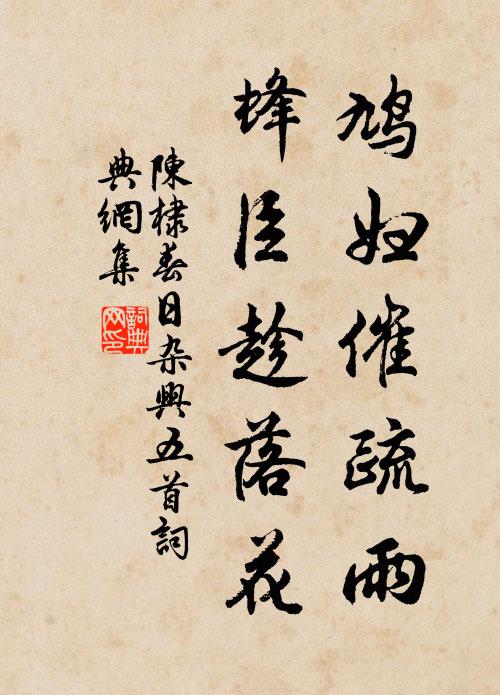 鳩婦催疏雨
蜂臣趁落花
陳棣春日杂興五首詞
典網集
詞典
网印